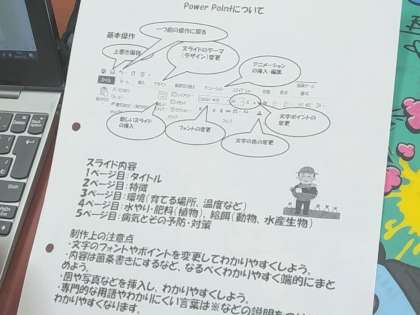 Power Pointについて
基本操作
一つ前の操作に戻る
上書き保存
スライドのテーマ
(デザイン)変更
アニメーション
の挿入・編集
新しいスライド
の挿入
フォントの変更
文字の色の変更
文字ポイントの
変更
スライド内容
1ページ目:タイトル
2ページ目:特徴
3ページ目:環境(育てる場所、温度など)
4ページ目:水やり・肥料(植物)、給餌(動物、水産生物)
5ページ目:病気とその予防・対策
制作上の注意点
・文字のフォントやポイントを変更してわかりやすくしよう。
・内容は箇条書きにするなど、なるべくわかりやすく端的にまと
めよう。
・図や写真などを挿入し、わかりやすくしよう。
・専門的な用語やわかりにくい言葉は※などの説明を
わかりやすくなります。